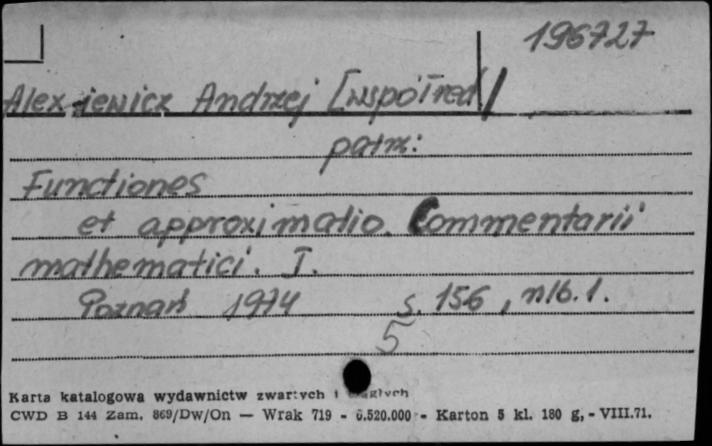 196727
Alexiewicz Andrzej [współred.]
patrz:
Functiones
et approximatio. Commentarii
mathematici. I.
Poznań 1974 s. 156, nlb. 1.
5
Karta katalogowa wydawnictw zwartych i ciągłych
CWD B 144 Zam. 869/Dw/On — Wrak 719 - 6.520.000 - Karton 5 kl. 180 g, - VIII.71.